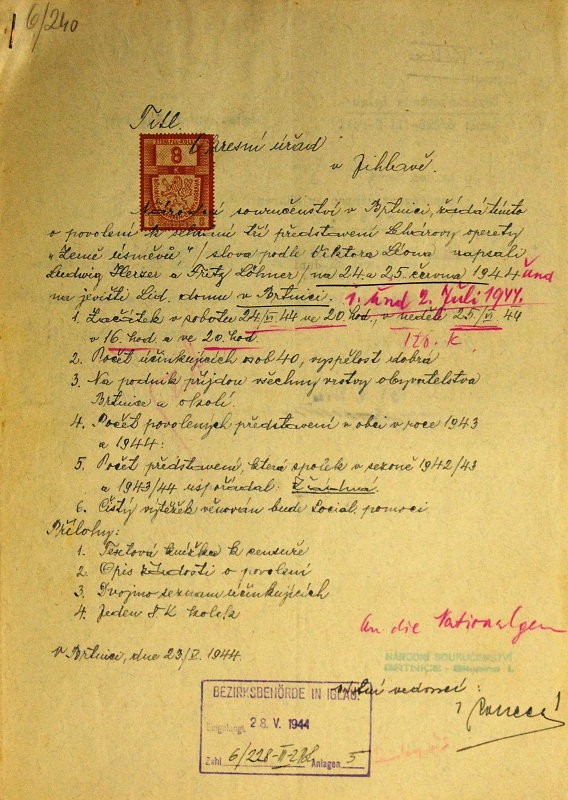 6/240
Titl.
STEMPEL-KOLEK
8
K
Okresní úřad
v Jihlavě.
Národní souručenství v Brtnici, žádá tímto
o povolení k sehrání tří představení Lehárovy operety
"Země úsměvů", / slova podle Viktora Léona napsali
Ludwig Herzer a Fritz Löhner / na 24. a 25. června 1944 und
na jevišti Lid. domu v Brtnici. 1. und 2. Juli 1944.
1. Začátek v sobotu 24/VI 44 ve 20 hod., v neděli 25/VI 44
v 16 hod a ve 20 hod. 120. K.
2. Počet účinkujících osob 40, vyspělost dobrá
3. Na podnik přijdou všechny vrstvy obyvatelstva
Brtnice a okolí.
4. Počet povolených představení v obci v roce 1943
a 1944:
5. Počet představení, která spolek v sezoně 1942/43
a 1943/44 uspořádal: žádná.
6. Čistý výtěžek věnován bude Social. pomoci
Přílohy:
1. Textová knížka k censuře
2. Opis žádosti o povolení
3. Dvojmo seznam účinkujících
4. Jeden 8 K kolek
An die Nationalgem
V Brtnici, dne 23/V. 1944.
NÁRODNÍ SOURUČENSTVÍ
BRTNICE - Skupina I.
vedoucí:
BEZIRKSBEHÖRDE IN IGLAU.
Eingelangt 28. V. 1944
Zahl 6/228-II- Anlagen 5